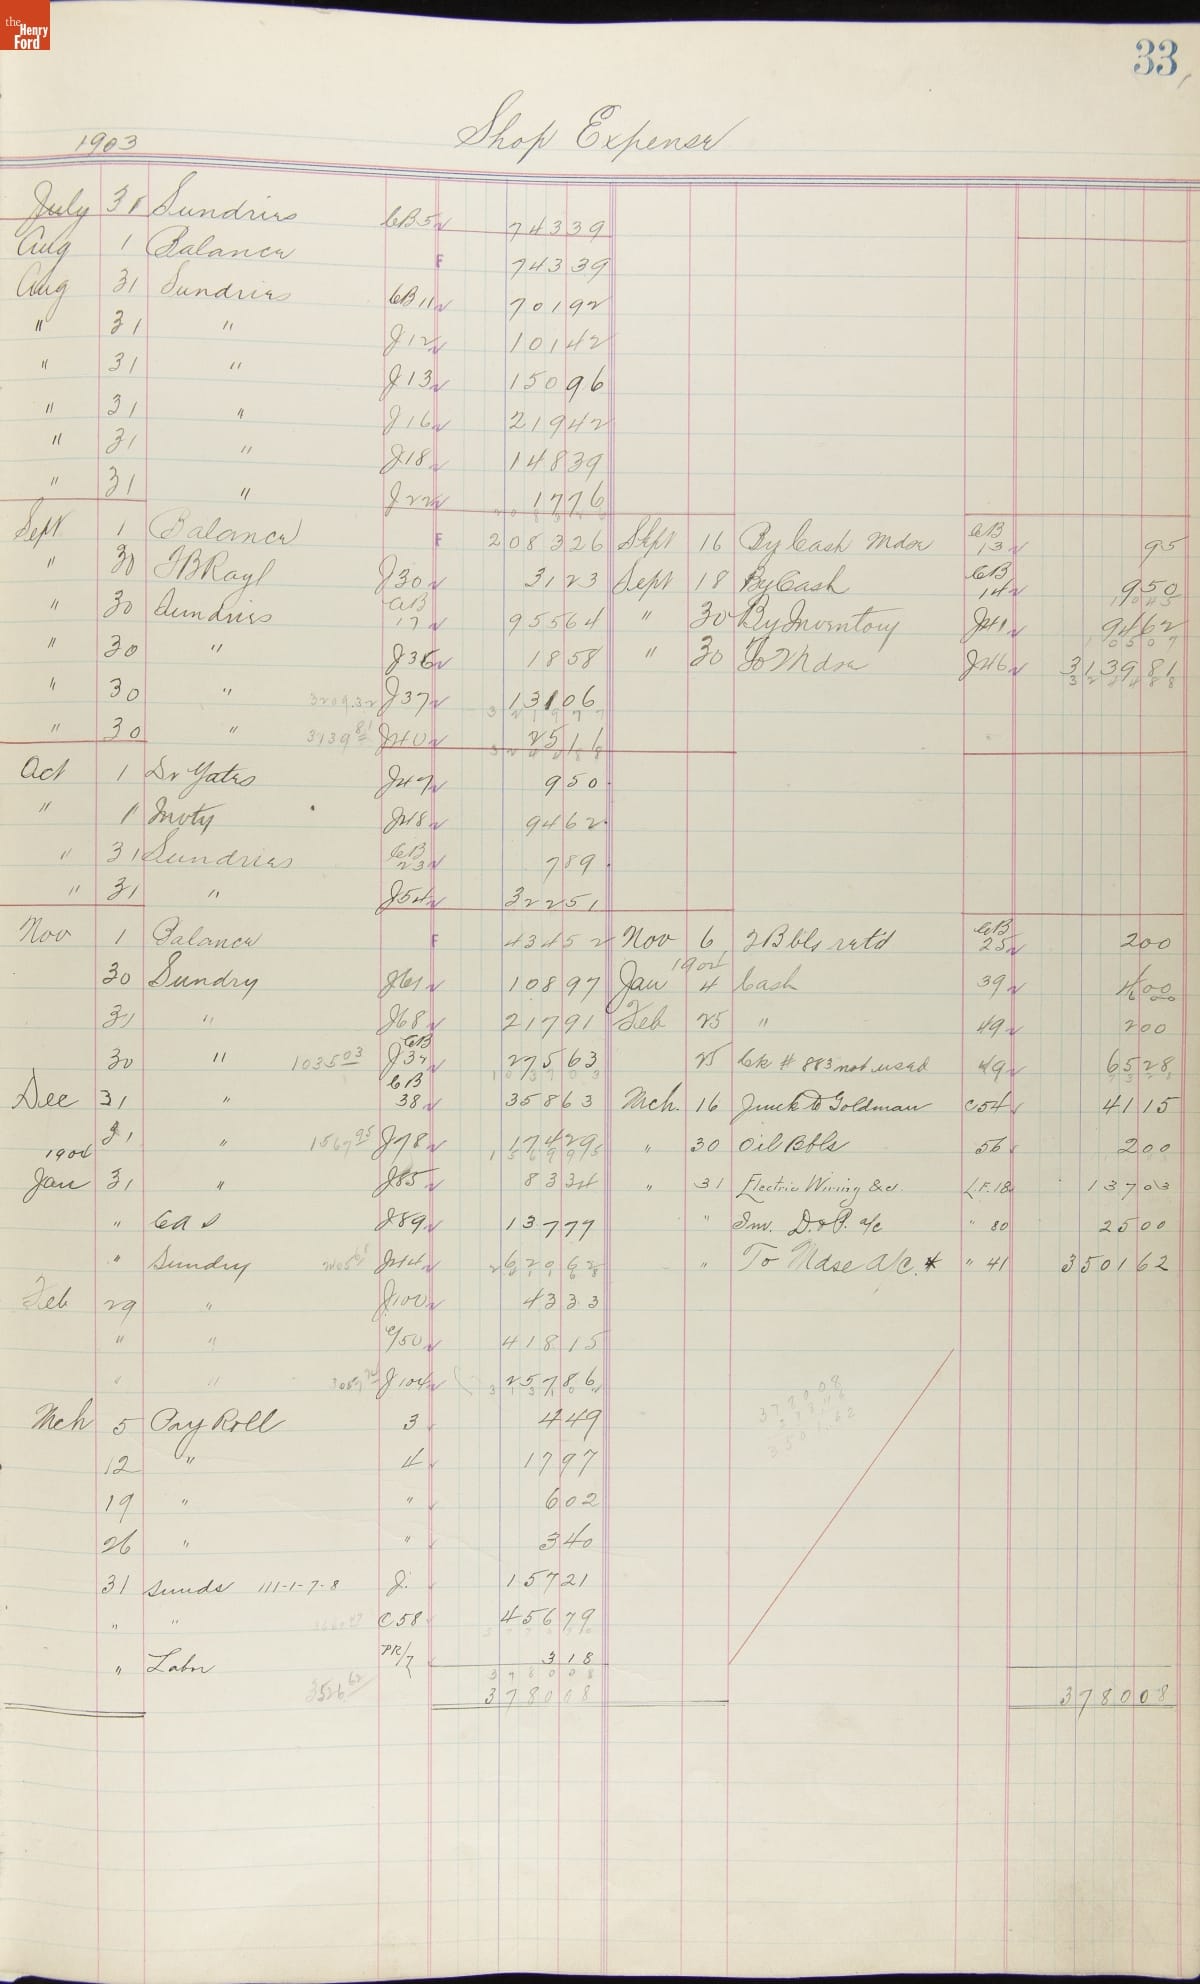 the Henry Ford
33
1903 Shop Expense
July 31 Sundries CB5 743 39
Aug 1 Balance F 743 39
Aug 31 Sundries CB11 701 92
" 31 " J12 101 42
" 31 " J13 150 96
" 31 " J16 219 42
" 31 " J18 148 39
" 31 " J22 17 76
Sept 1 Balance F 2083 26 Sept 16 By Cash Mdse CB 13 95
" 30 TB Rayl J30 31 23 Sept 18 By Cash CB 14 9 50
" 30 Sundries CB 17 955 64 " 30 By Inventory J41 94 62
" 30 " J36 18 58 " 30 To Mdse J46 3139 81
" 30 " 3209.32 J37 131 06
" 30 " 3139 81 J40 25 11
Oct 1 Dr Yates J47 9 50
" 1 Invty J48 94 62
" 31 Sundries CB 23 7 89
" 31 " J54 322 51
Nov 1 Balance F 434 52 Nov 6 2 Bbls ret'd CB 25 2 00
30 Sundry J61 108 97 1904 Jan 4 Cash 39 1 00
31 " J68 217 91 Feb 25 " 49 2 00
30 " 1035 03 CB J32 275 63 25 Ck # 883 not used 49 65 28
Dec 31 " CB 38 358 63 Mch. 16 Junk to Goldman C54 41 15
31 " 1567 95 J78 174 29 " 30 Oil Bbls 56 2 00
1904 Jan 31 " J85 83 34 " 31 Electric Wiring &c. L.F.18 137 03
" J89 137 77 " Inv. D. & P. a/c " 80 25 00
" Sundry J94 620 62 " To Mdse A/C. * " 41 3501 62
Feb 29 " J100 43 33
" " C/50 418 15
" " J104 257 86
Mch 5 Pay Roll 3 4 49
12 " 4 17 97
19 " " 6 02
26 " " 3 40
31 Sunds 111-1-7-8 J. 157 21
" " C58 456 79
" Labor PR/7 3 18
3526 62 3780 08 3780 08